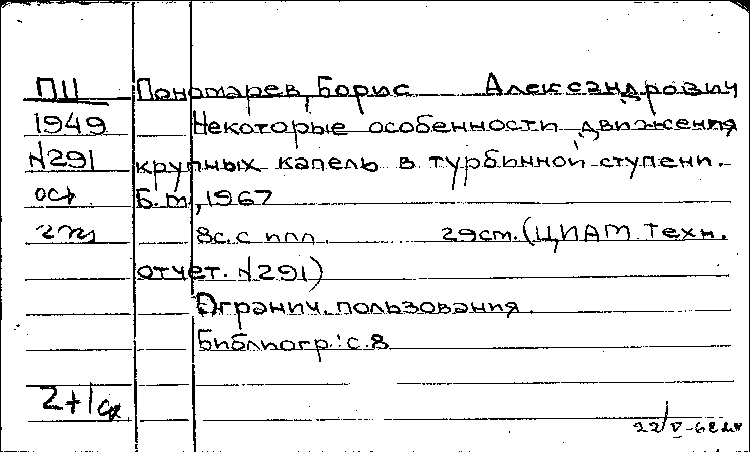 ПЦ Пономарев, Борис Александрович
1949 Некоторые особенности движения
№291 крупных капель в турбинной ступени.
Б.м., 1967
8с. с илл. 29см. (ЦИАМ Техн.
отчет. №291)
Огранич. пользования.
Библиогр.: с.8
2+1
22/V-68